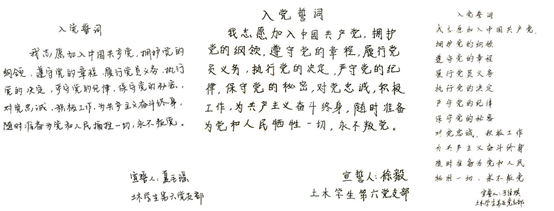 入党誓词
我志愿加入中国共产党，拥护党的
纲领，遵守党的章程，履行党员义务，执行
党的决定，严守党的纪律，保守党的秘密，
对党忠诚，积极工作，为共产主义奋斗终身，
随时准备为党和人民牺牲一切，永不叛党。
宣誓人：
土木学生第六党支部
入党誓词
我志愿加入中国共产党，拥护
党的纲领，遵守党的章程，履行党
员义务，执行党的决定，严守党的纪
律，保守党的秘密，对党忠诚，积极
工作，为共产主义奋斗终身，随时准备
为党和人民牺牲一切，永不叛党。
宣誓人：徐毅
土木学生第六党支部
入党誓词
我志愿加入中国共产党，
拥护党的纲领
遵守党的章程
履行党员义务
执行党的决定
严守党的纪律
保守党的秘密
对党忠诚，积极工作
为共产主义奋斗终身
随时准备为党和人民
牺牲一切，永不叛党
宣誓人：
土木学生第六党支部